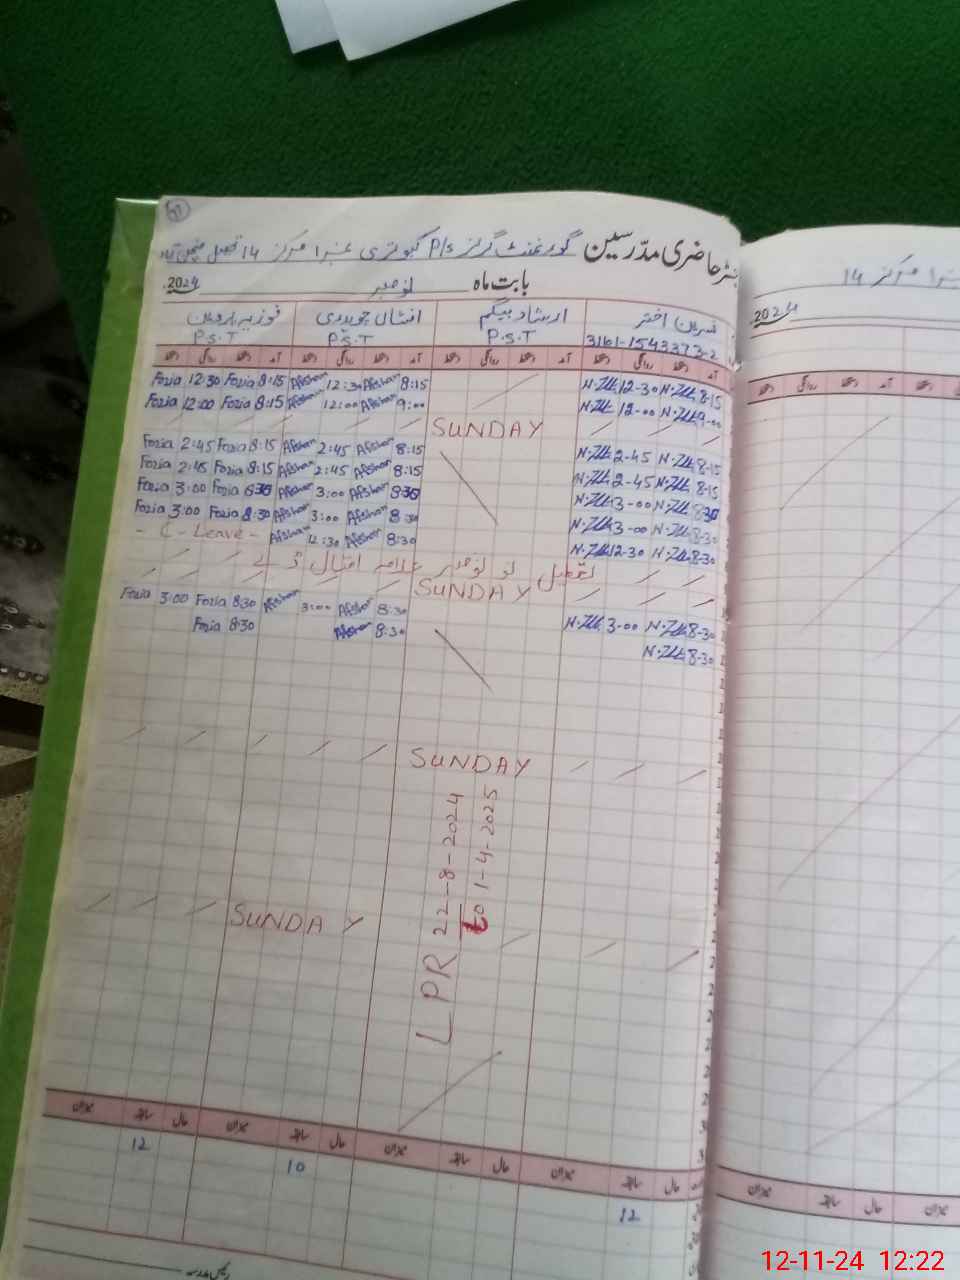 رجسٹر حاضری مدرسین گورنمنٹ گرلز P/s کبوتری نمبر 1 مرکز 14 تحصیل
بابت ماہ نومبر 2024
نسرین اختر ارشاد بیگم افشاں چوہدری فوزیہ پروین
31101-1543373-2 P.S.T P.S.T P.S.T
آمد دستخط روانگی دستخط آمد دستخط روانگی دستخط آمد دستخط روانگی دستخط آمد دستخط روانگی دستخط
Fozia 12:30 Fozia 8:15 Afshan 12:30 Afshan 8:15 12-30 8-15
Fozia 12:00 Fozia 8:15 Afshan 12:00 Afshan 9:00 12-00 9-00
SUNDAY
Fozia 2:45 Fozia 8:15 Afshan 2:45 Afshan 8:15 2-45 8-15
Fozia 2:45 Fozia 8:15 Afshan 2:45 Afshan 8:15 2-45 8-15
Fozia 3:00 Fozia 8:30 Afshan 3:00 Afshan 8:30 3-00 8-30
Fozia 3:00 Fozia 8:30 Afshan 3:00 Afshan 8:30 3-00 8-30
- C - Leave - Afshan 12:30 Afshan 8:30 12-30 8-30
تعطیل نو نومبر علامہ اقبال ڈے
SUNDAY
Fozia 3:00 Fozia 8:30 Afshan 3:00 Afshan 8:30 3-00 8-30
Fozia 8:30 Afshan 8:30 8-30
SUNDAY
LPR 22-8-2024 to 01-4-2025
SUNDAY
حال سابقہ میزان حال سابقہ میزان حال سابقہ میزان حال سابقہ میزان
12 10 12
مرکز 14
2024
12-11-24 12:22